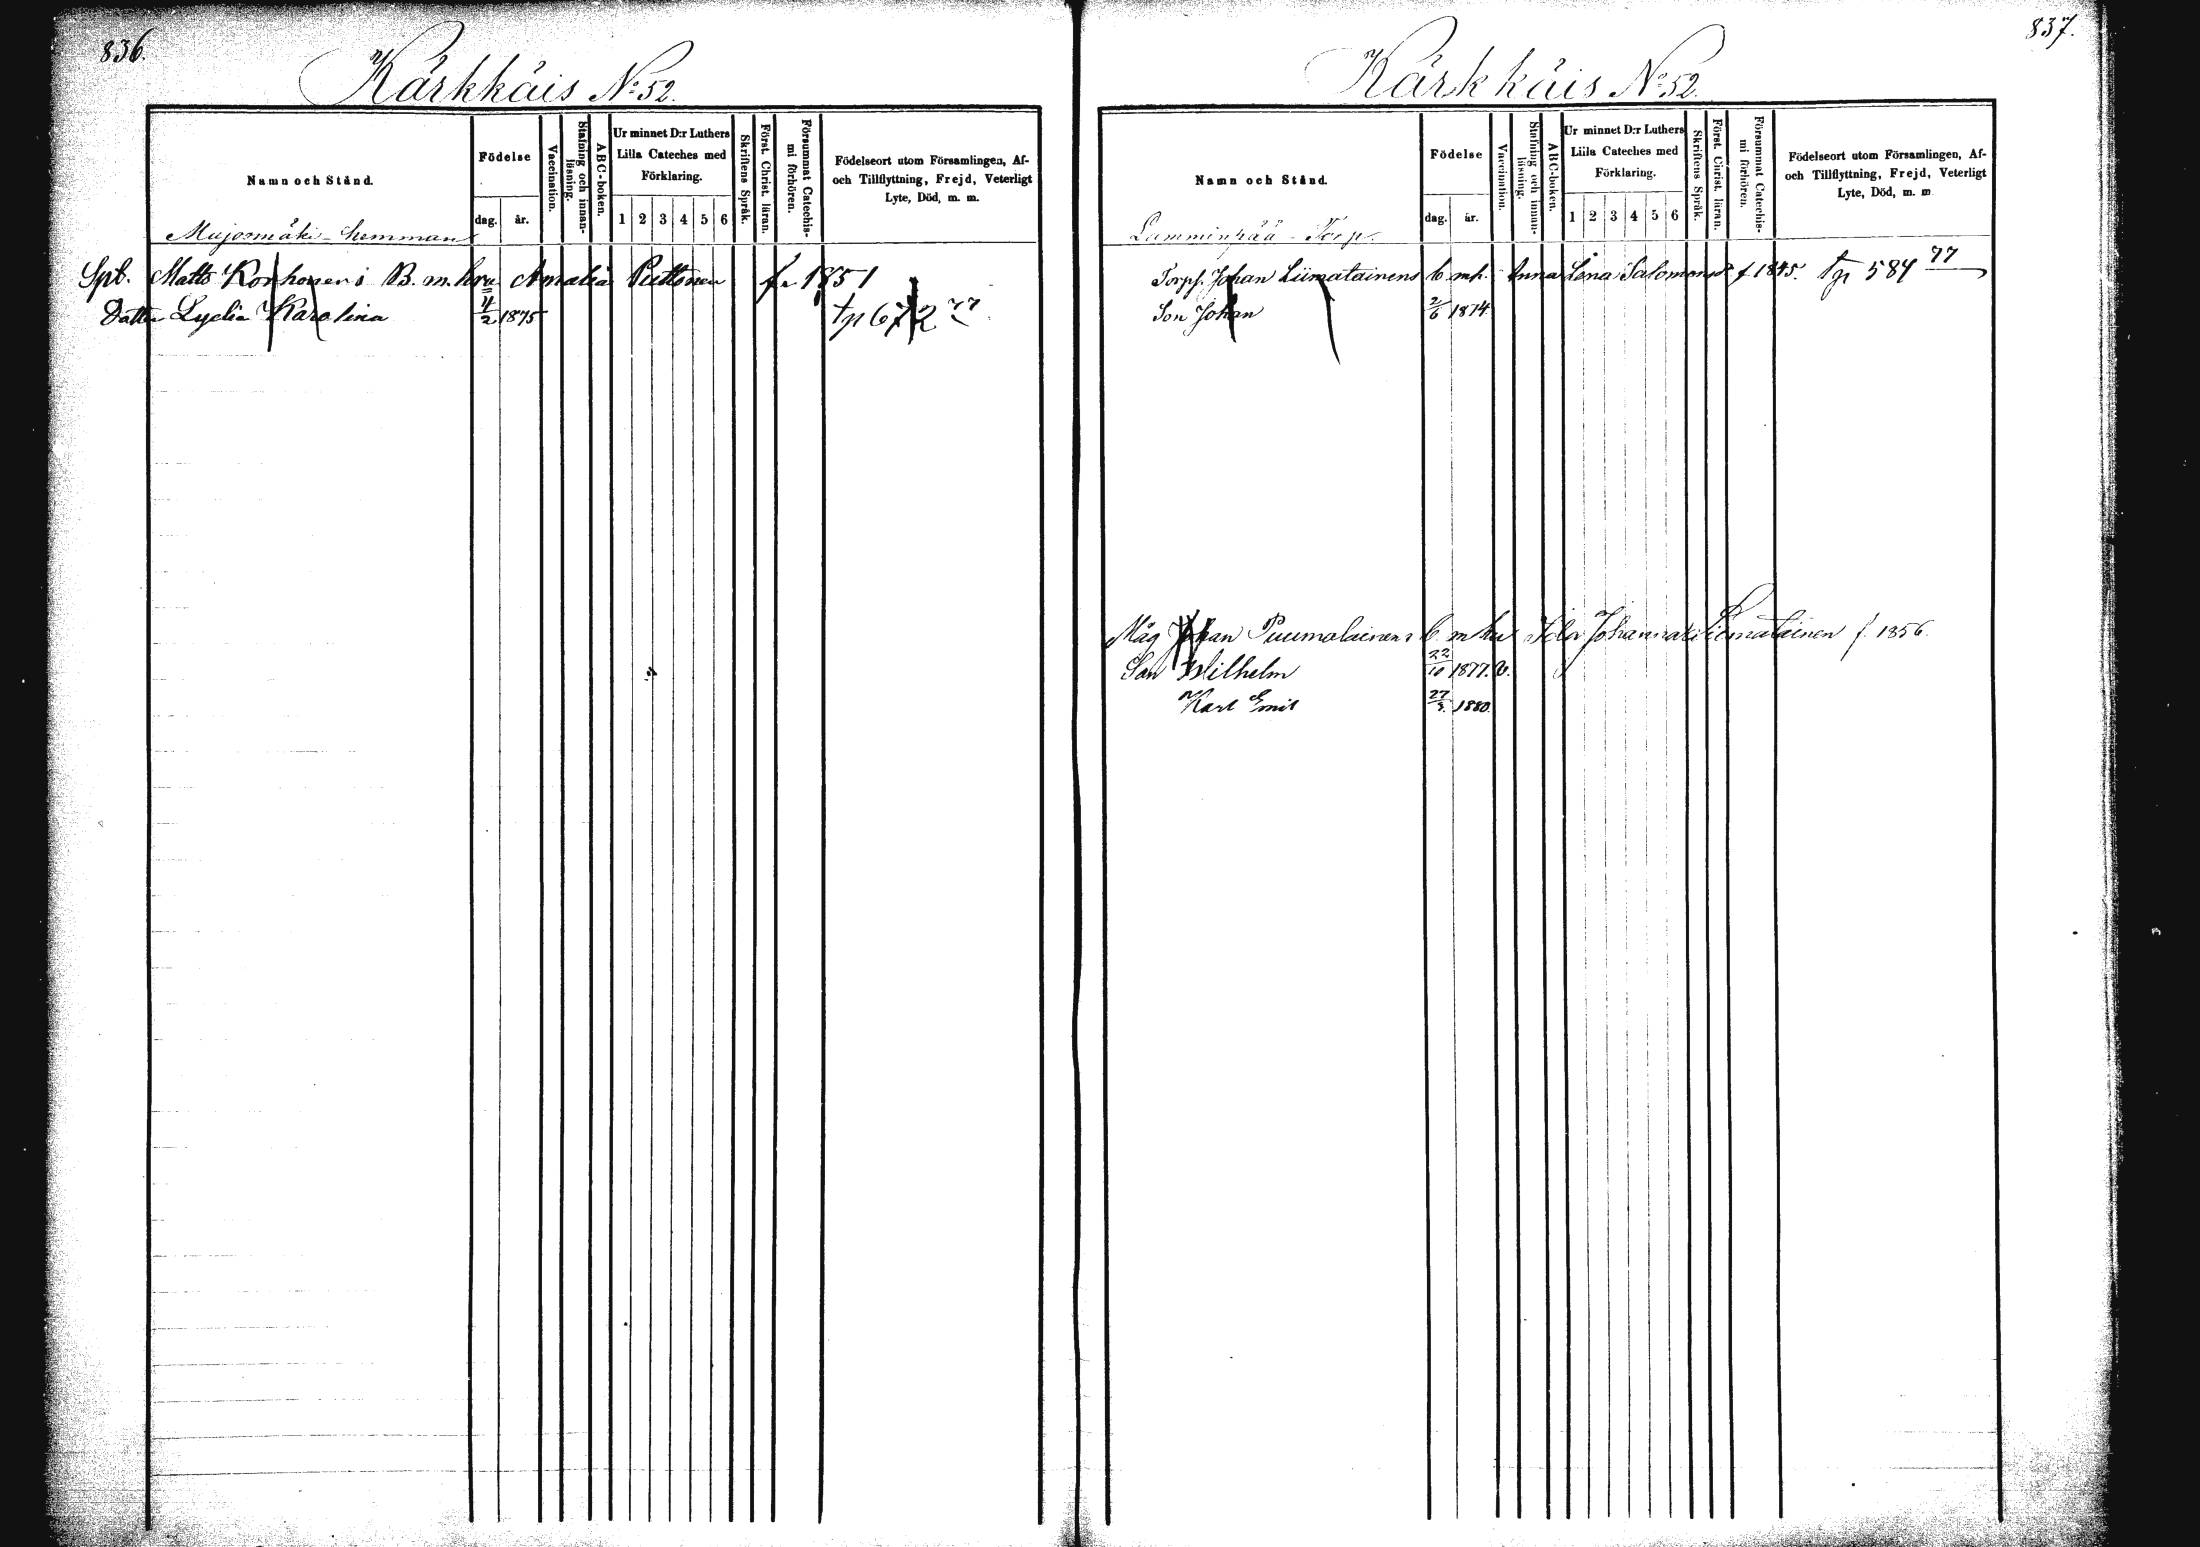 836.
Kärkkäis No 52.
Namn och Stånd.
Födelse
dag.
år.
Vaccination.
Stafning och innan-
läsning.
ABC-boken.
Ur minnet D:r Luthers
Lilla Cateches med
Förklaring.
1 2 3 4 5 6
Skriftens Språk.
Först. Christ. läran.
Försummat Catechis-
mi förhören.
Födelseort utom Församlingen, Af-
och Tillflyttning, Frejd, Veterligt
Lyte, Död, m. m.
Mujosmäki - hemman
Spb. Matts Korhonens B. m. hru Amalia Puttonen f. 1851
Dotter Lydia Karolina 4/2 1875 tp 672 77
837.
Kärkkäis No 52.
Namn och Stånd.
Födelse
dag.
år.
Vaccination.
Stafning och innan-
läsning.
ABC-boken.
Ur minnet D:r Luthers
Lilla Cateches med
Förklaring.
1 2 3 4 5 6
Skriftens Språk.
Först. Christ. läran.
Försummat Catechis-
mi förhören.
Födelseort utom Församlingen, Af-
och Tillflyttning, Frejd, Veterligt
Lyte, Död, m. m
Lamminpää - Torp.
Torp. Johan Liimatainens b. mh. Anna Lena Salomonsdr f 1845. tp 584 77
Son Johan 2/6 1874.
Måg Johan Puumalainens b m hu Ida Johanna Liimatainen f. 1856.
Son Wilhelm 22/10 1877. v.
Karl Emil 27/3. 1880.